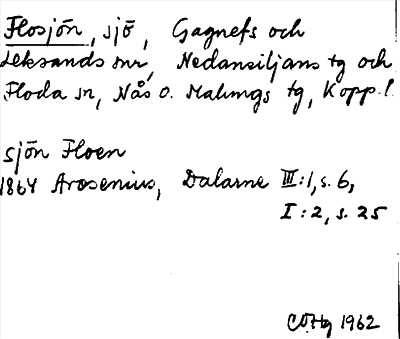 Flosjön, sjö, Gagnefs och
Leksands snr, Nedansiljans tg och
Floda sn, Nås o. Malungs tg, Kopp. l.
sjön Floen
1864 Arosenius, Dalarne III:1, s. 6,
I:2, s. 25
COHg 1962